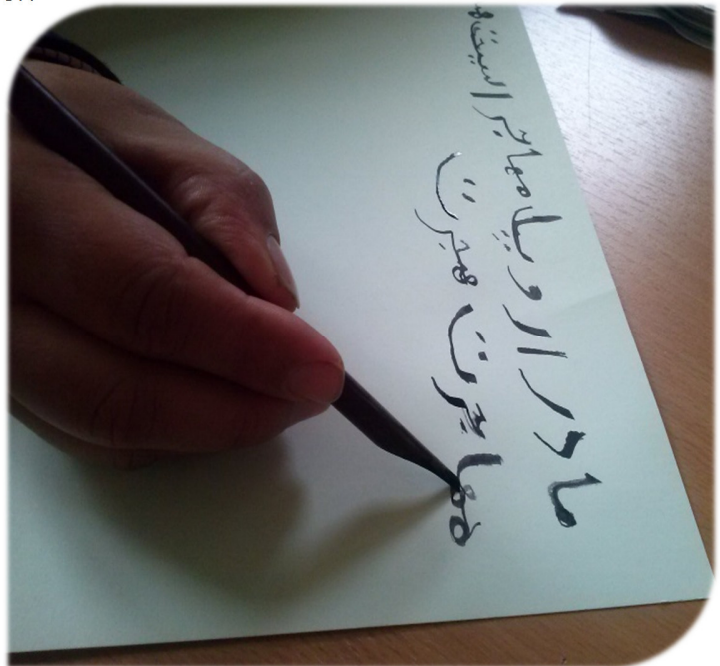 ما در اروپا مهاجر
مهاجرت هجرت